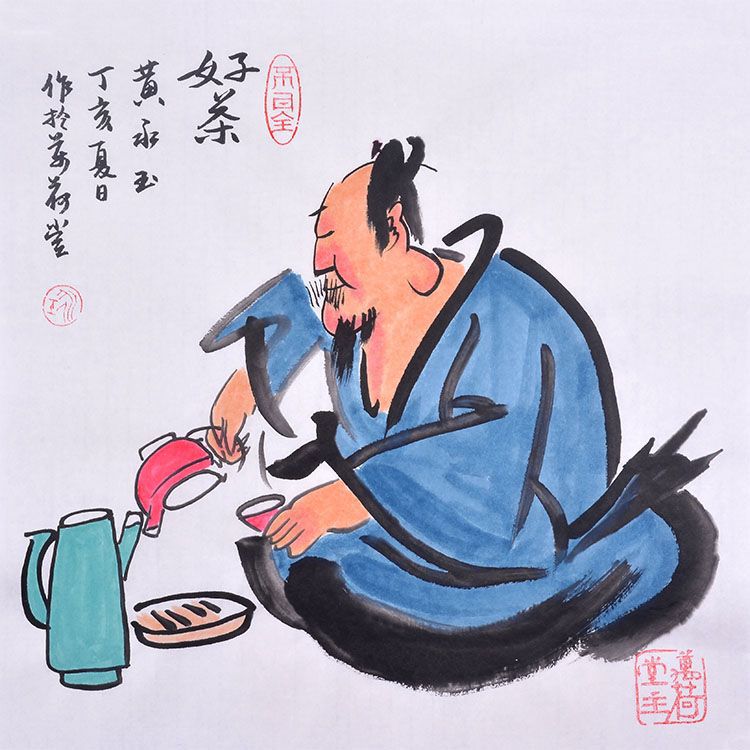 好茶
黄永玉
丁亥夏日
作於萬荷堂
萬荷
堂主